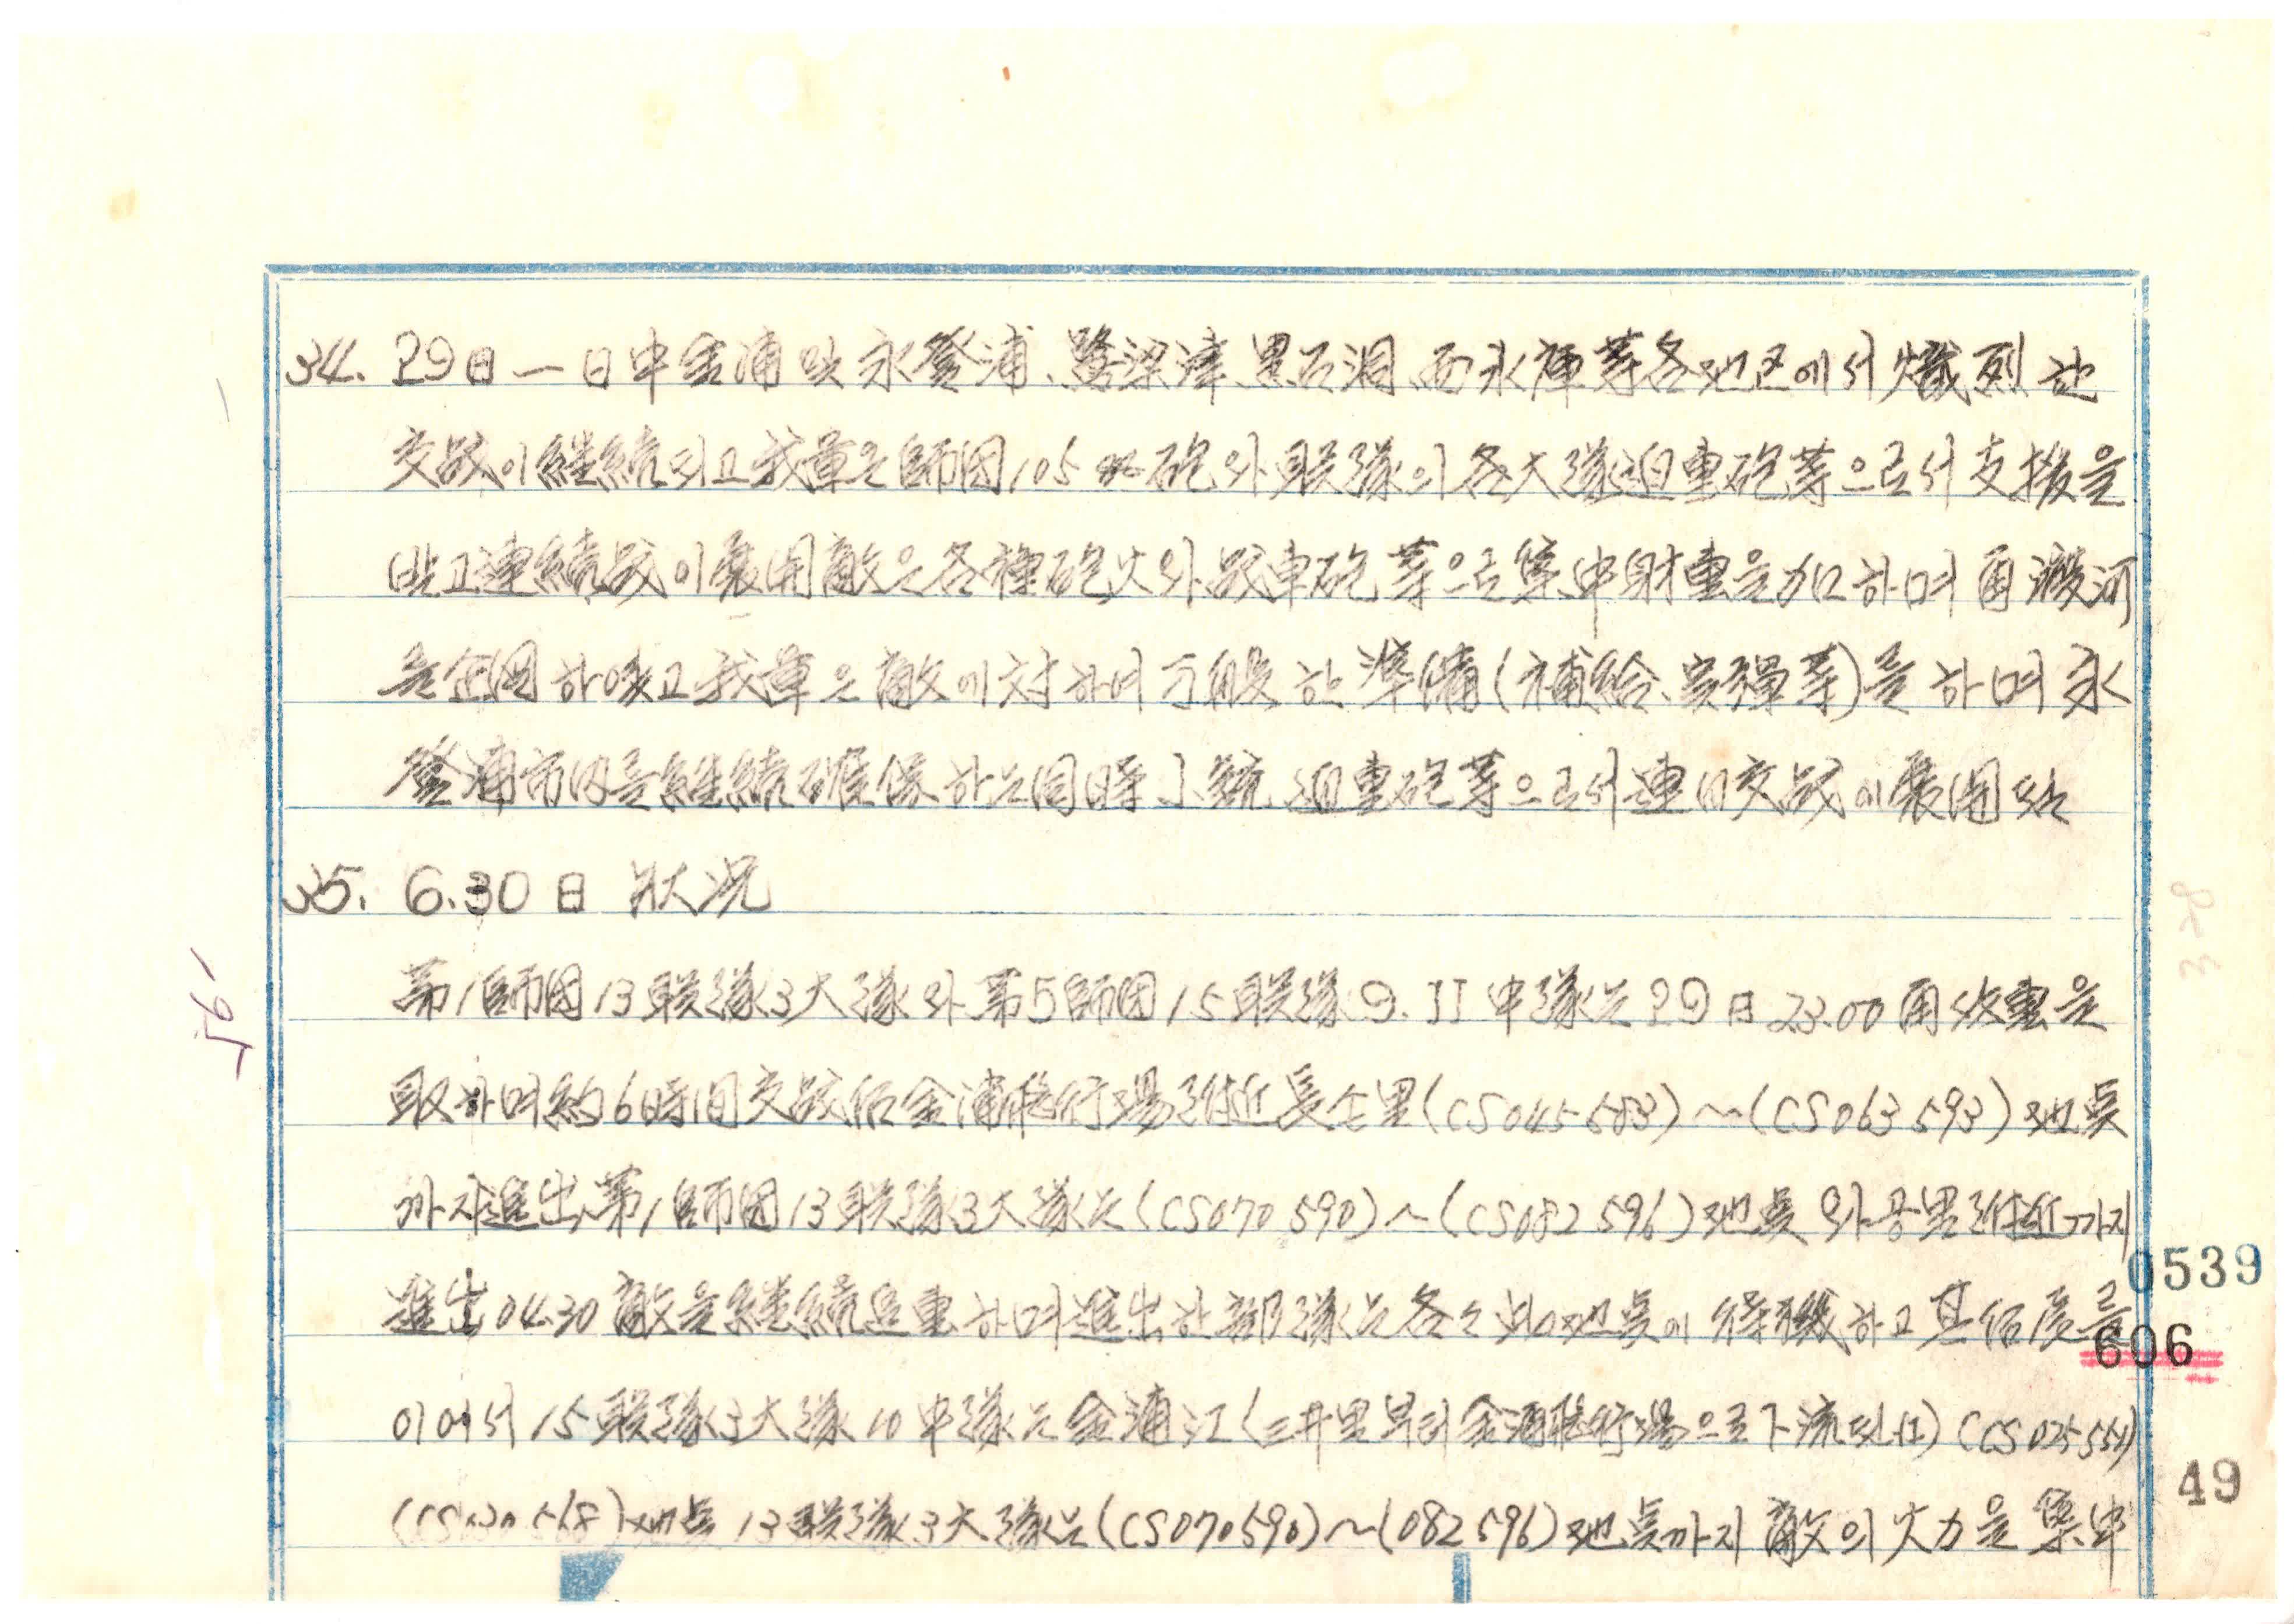 34. 29日 一日中 金浦 및 永登浦、鷺梁津、黑石洞、西氷庫等各地区에서 熾烈한
交戰이 継続되고 我軍은 師団 105㎜砲와 聯隊의 各大隊 迫車砲等으로서 支援을
받고 連続戰이 展開 敵은 各種砲火와 戰車砲等으로 集中射擊을 加하며 再渡河
을 企図하였고 我軍은 敵에 対하여 万般한 準備(補給、実彈等)을 하며 永
登浦市内을 継続 確保하는 同時 小銃 迫車砲等으로서 連日 交戰이 展開됨
35. 6.30日 狀況
第1師団 13聯隊 3大隊와 第5師団 15聯隊 9. 11中隊는 29日 23.00 再攻擊을
取하며 約6時間 交戰 后 金浦飛行場 附近 長士里(CS045583)～(CS063593)地点
까지 進出、第1師団 13聯隊 3大隊는 (CS070590)～(CS082596)地点 附近까지
進出 04.30 敵을 継続 追擊하며 進出한 部隊는 各々 此地点에 待機하고 其后
이어서 15聯隊 3大隊 10中隊는 金浦江(三井里부터 金浦飛行場으로 下流되는江)
地点 13聯隊 3大隊는 (CS070590)～(082596)地点까지 敵의 火力을 集中
56
0539
606
49